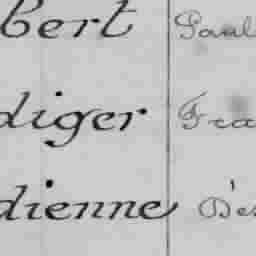 bert Paul
diger Fra
dienne Dés